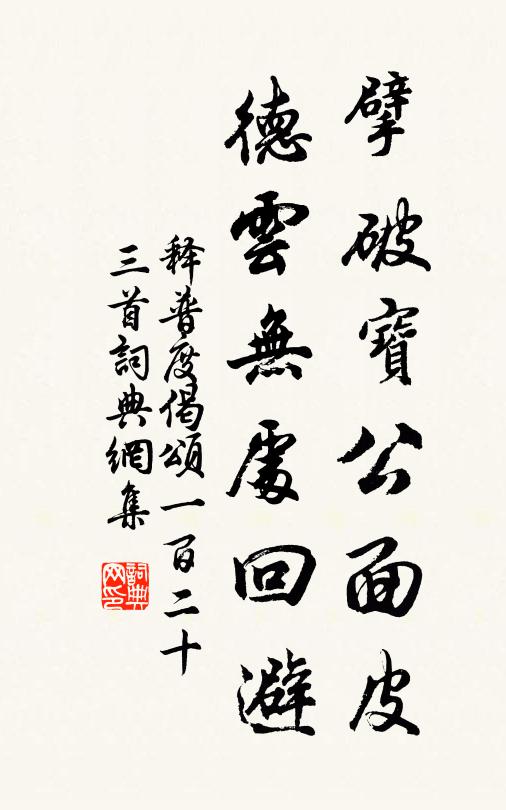 擘破寶公面皮
德雲無處回避
释普度偈頌一百二十
三首詞典網集
詞典
网印